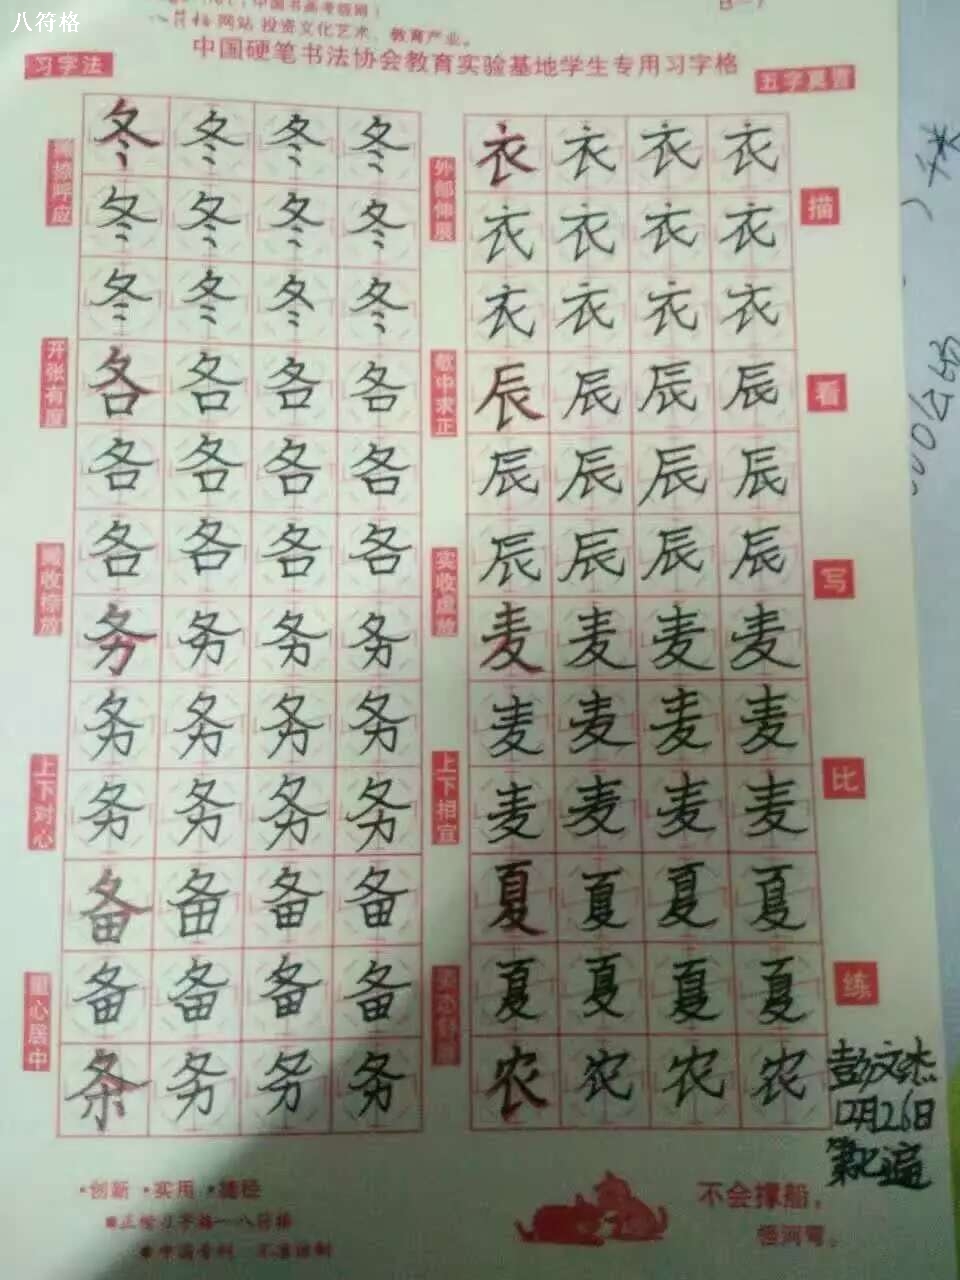 八符格
网站 投资文化艺术、教育产业。
中国硬笔书法协会教育实验基地学生专用习字格
习字法
五字真言
冬冬冬冬 衣衣衣衣
冬冬冬冬 衣衣衣衣
冬冬冬冬 衣衣衣衣
各各各各 辰辰辰辰
各各各各 辰辰辰辰
各各各各 辰辰辰辰
务务务务 麦麦麦麦
务务务务 麦麦麦麦
务务务务 麦麦麦麦
备备备备 夏夏夏夏
备备备备 夏夏夏夏
条务务务 农农农农
呼应
开张有度
放
上下对心
重心居中
外部伸展
欹中求正
实收虚放
上下相宜
描
看
写
比
练
彭文杰
12月26日
·创新 ·实用 ·捷径
■正楷习字格一八符格
■中国专利 不准仿制
不会撑船，
怪河弯。